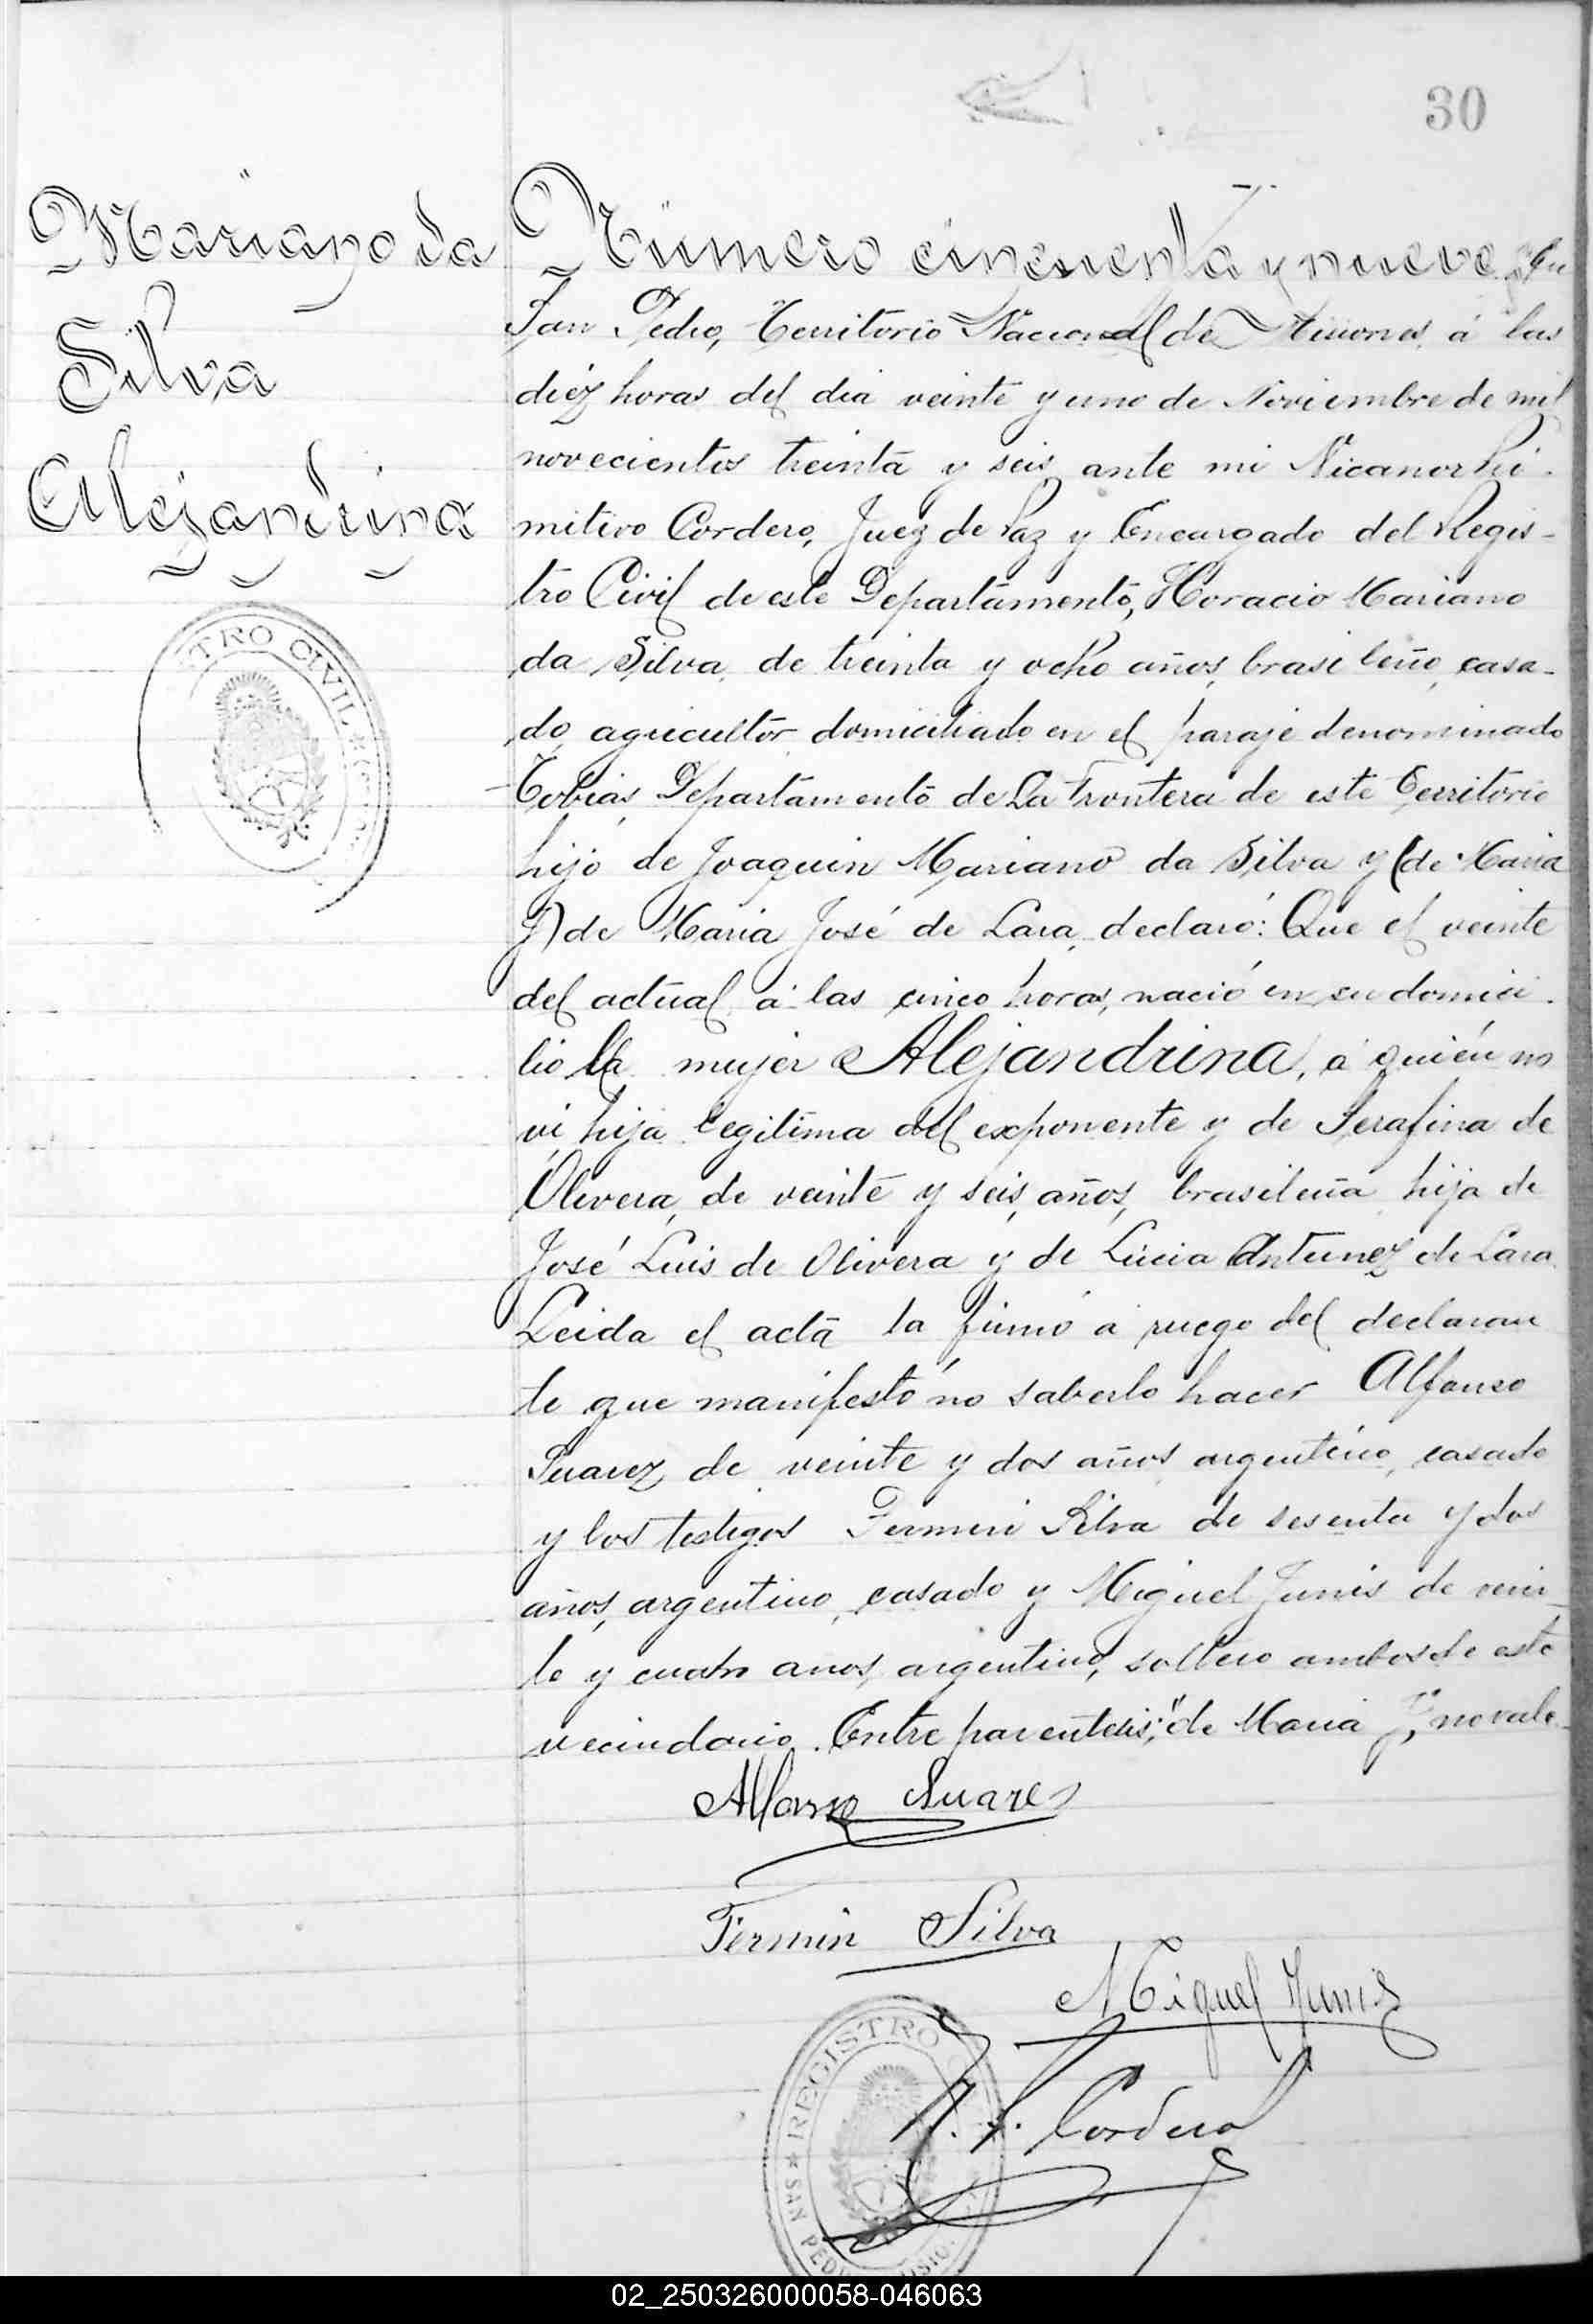 30
Mariano da
Silva
Alejandrina
TRO CIVIL
Número cincuenta y nueve En
San Pedro, Territorio Nacional de Misiones, á las
diéz horas del dia veinte y uno de Noviembre de mil
novecientos treinta y seis, ante mi Nicanor Pri-
mitivo Cordero, Juez de Paz y Encargado del Regis-
tro Civil de este Departamento, Horacio Mariano
da Silva, de treinta y ocho años, brasileño, casa-
do, agricultor domiciliado en el paraje denominado
Tobias, Departamento de La Frontera de este Territorio
hijo de Joaquin Mariano da Silva y (de Maria
J) de Maria José de Lara, declaró: Que el veinte
del actual á las cinco horas, nació en su domici-
lio la mujer Alejandrina, á quién no
vi, hija legitima del exponente y de Serafina de
Olivera, de veinte y seis, años, brasileña, hija de
José Luis de Olivera y de Lucia Antunez de Lara.
Leida el acta la firmó a ruego del declaran
te que manifestó no saberlo hacer Alfonso
Suarez de veinte y dos años argentino, casado
y los testigos Fermin Silva de sesenta y dos
años, argentino, casado y Miguel Junis de vein-
te y cuatro años, argentino, soltero ambos de este
vecindario. Entre parentesis; "de Maria J", no vale.
Alfonso Suares
Fermin Silva
Miguel Junis
N. P. Cordero
REGISTRO
SAN PEDRO
02_250326000058-046063